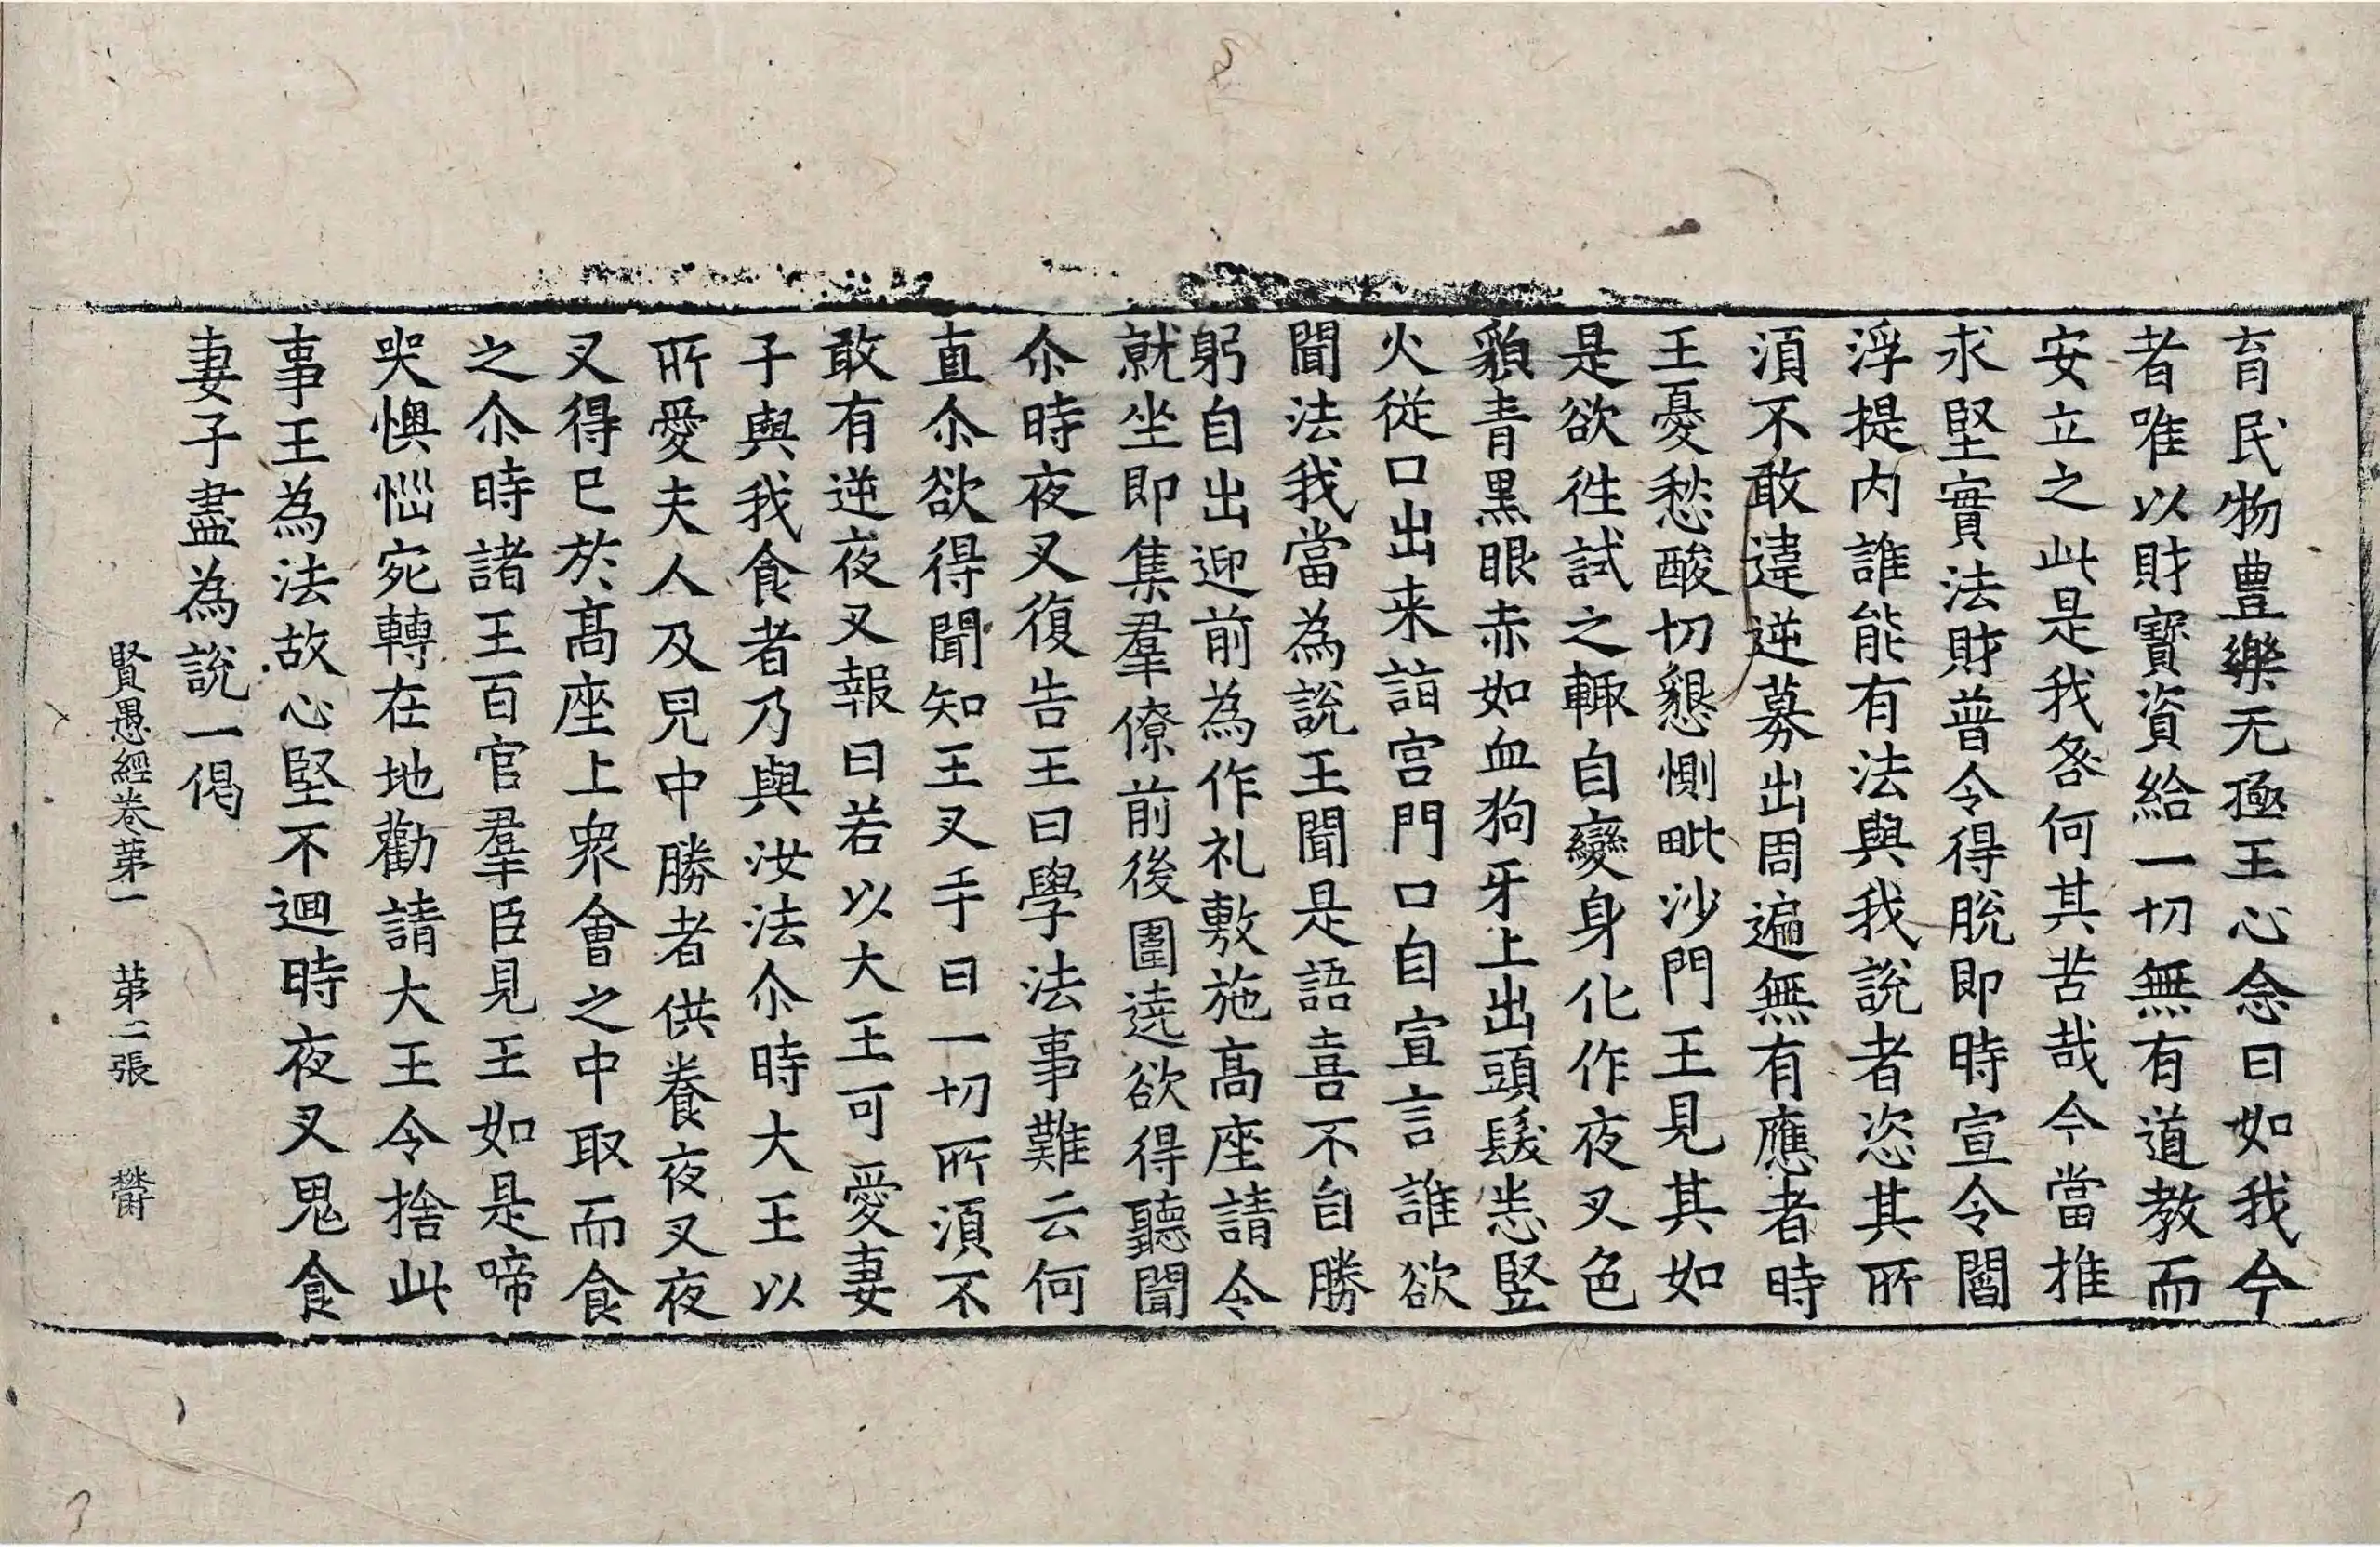 育民物豊樂无極王心念曰如我今
者唯以財寶資給一切無有道教而
安立之此是我咎何其苦哉今當推
求堅實法財普令得脫即時宣令閻
浮提内誰能有法與我說者恣其所
湏不敢違逆募出周遍無有應者時
王憂愁酸切懇惻毗沙門王見其如
是欲徃試之輙自變身化作夜叉色
貌青黑眼赤如血狗牙上出頭髮悉竪
火從口出来詣宫門口自宣言誰欲
聞法我當為說王聞是語喜不自勝
躬自出迎前為作礼敷施髙座請令
就坐即集羣僚前後圍遶欲得聽聞
尒時夜叉復告王曰學法事難云何
直尒欲得聞知王叉手曰一切所湏不
敢有逆夜叉報曰若以大王可愛妻
子與我食者乃與汝法尒時大王以
所愛夫人及兒中勝者供養夜叉夜
叉得已於髙座上衆會之中取而食
之尒時諸王百官羣臣見王如是啼
哭懊惱宛轉在地勸請大王令捨此
事王為法故心堅不迴時夜叉鬼食
妻子盡為說一偈
賢愚經卷苐一 苐二張 欝